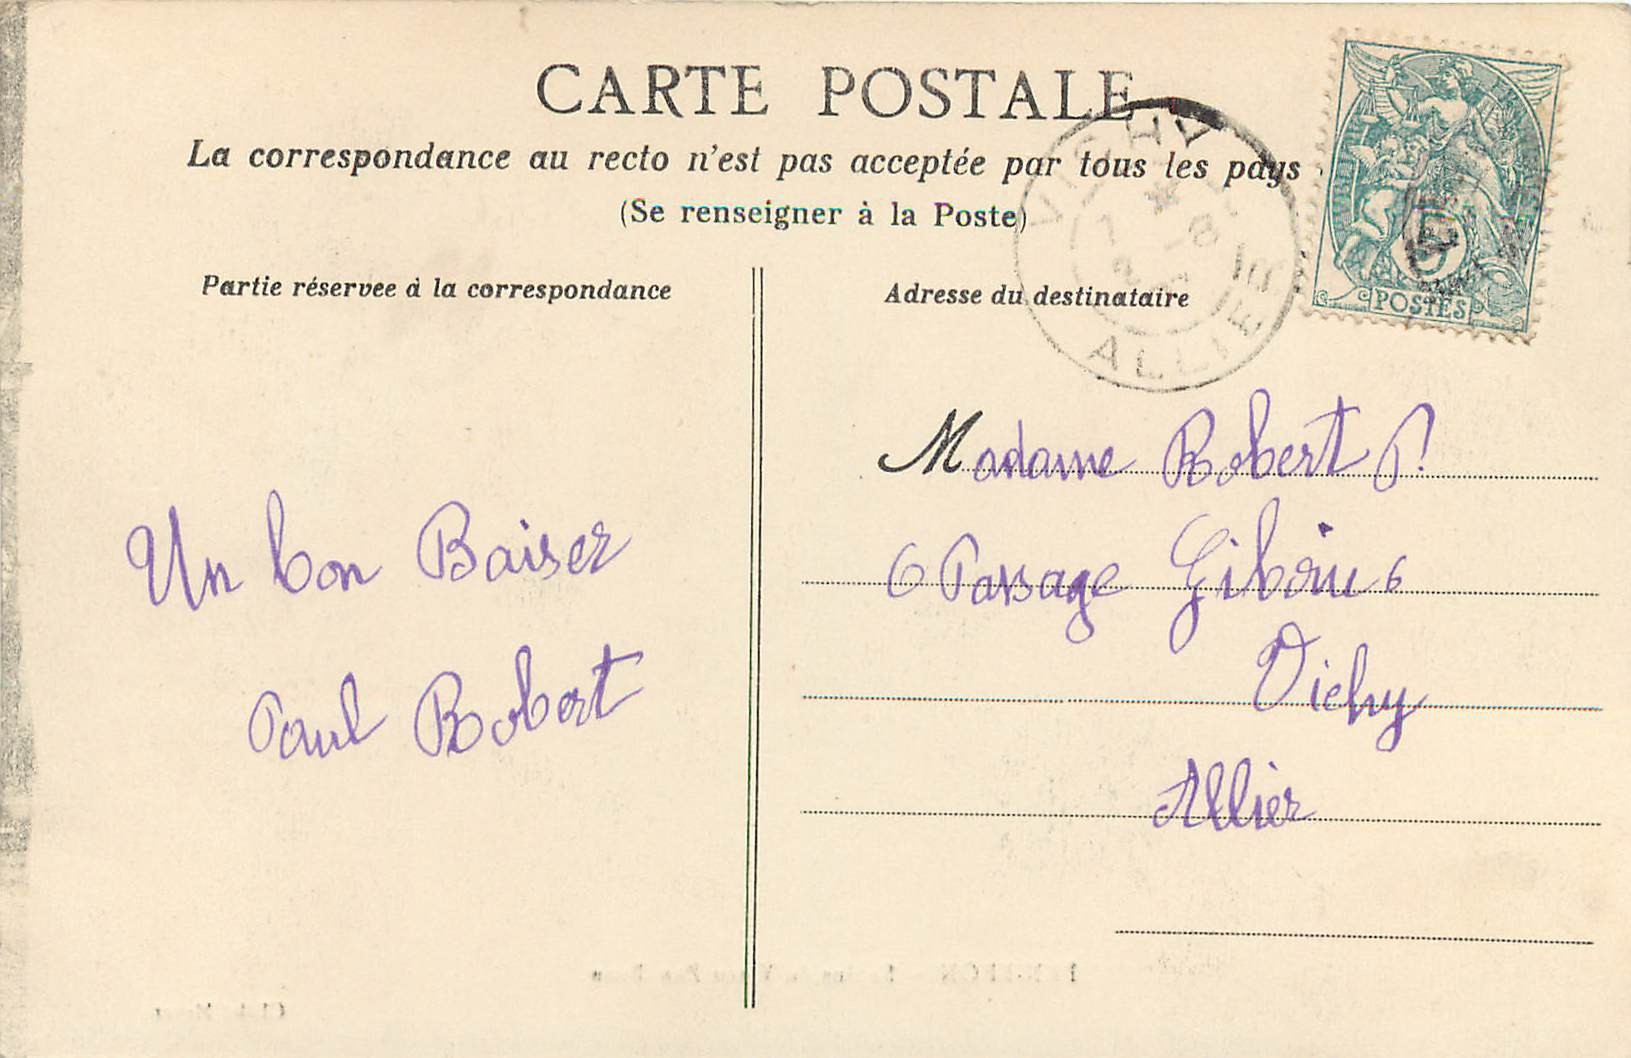 CARTE POSTALE
La correspondance au recto n'est pas acceptée par tous les pays
(Se renseigner à la Poste)
Partie réservee à la correspondance
Adresse du destinataire
VICHY
ALLIER
5
POSTES
Un bon Baiser
Paul Robert
Madame Robert P.
6 Passage Giboin 6
Vichy
Allier